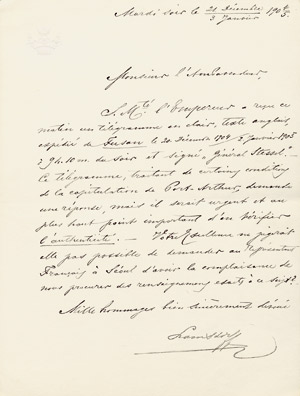 Mardi soir le 21 Décembre 1904/
3 Janvier 5.
Monsieur l'Ambassadeur
S. M.té l'Empereur a reçu ce
matin un télégramme en clair, texte anglais
expédié de Fusan le 20 Décembre 1904 2 janvier 1905
à 9h. 10 m. du soir et signé "Général Stessel".
Ce télégramme, traitant de certaines conditions
de la capitulation de Port-Arthur, demande
une réponse, mais il serait urgent et au
plus haut point important d'en vérifier
l'authenticité. — Votre Excellence ne jugerait
elle pas possible de demander au Représentant
Français à Séoul d'avoir la complaisance de
nous procurer des renseignements exacts à ce sujet?
Mille hommages bien sincèrement dévoué